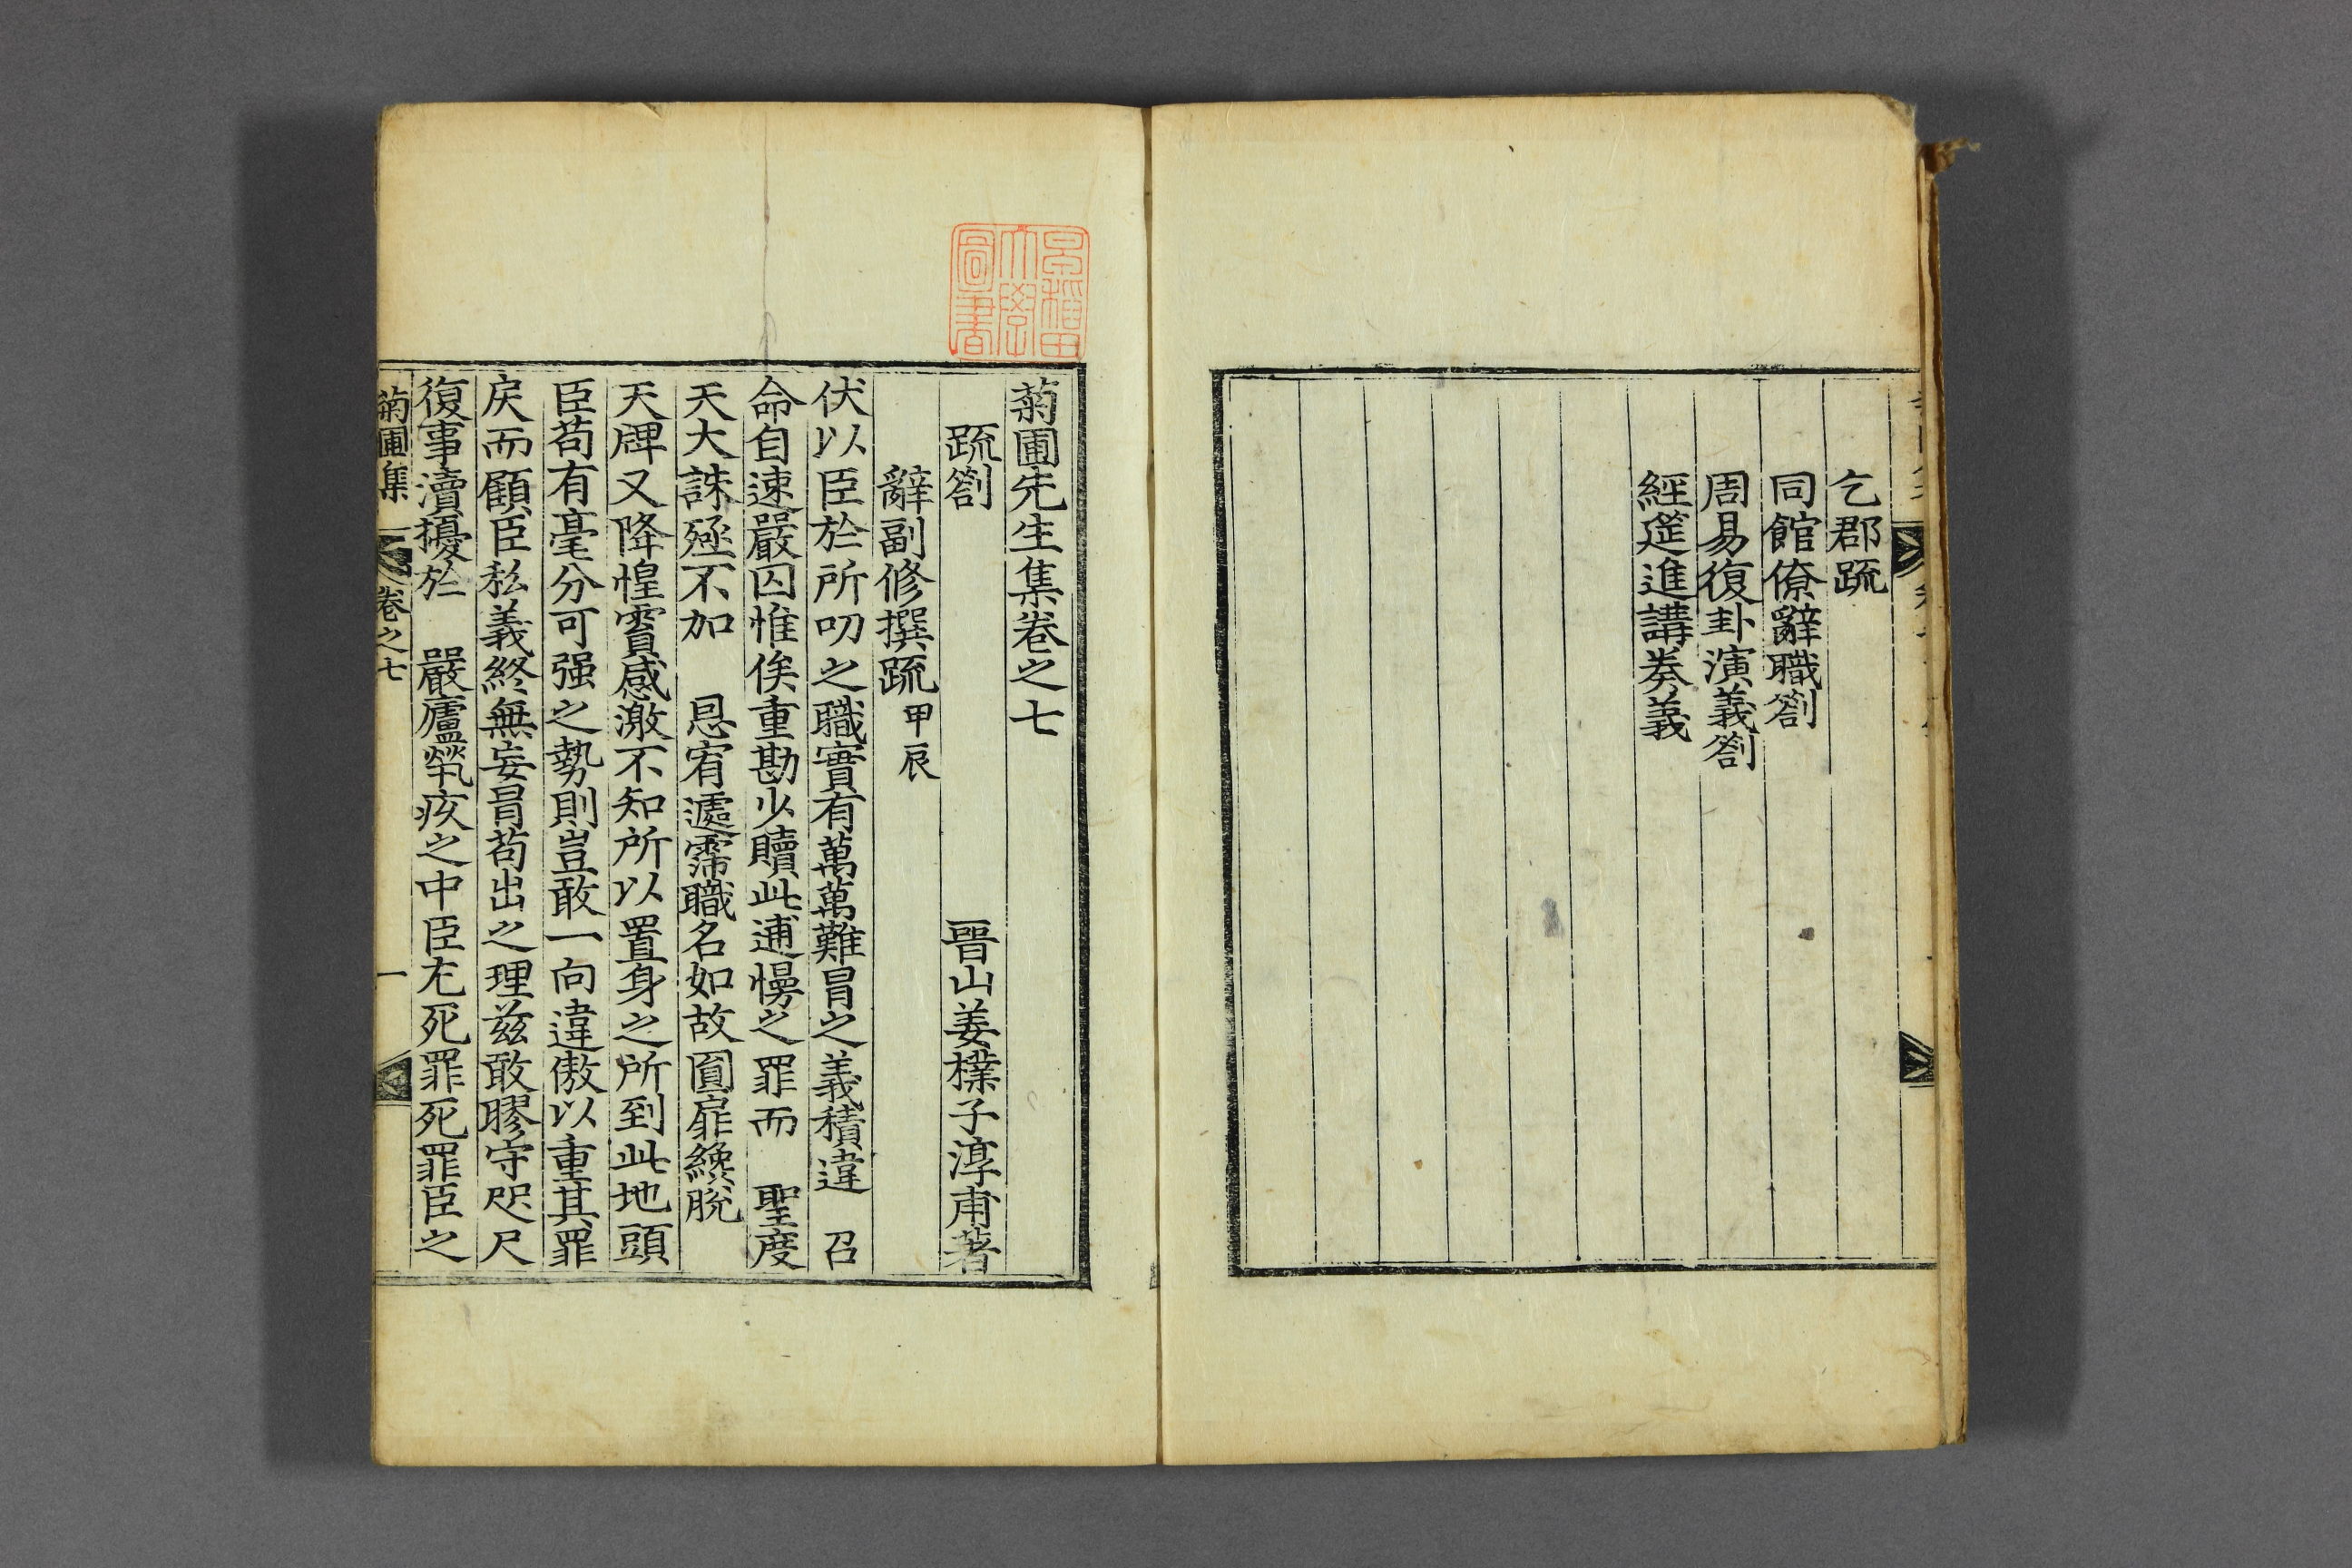 乞郡疏
同館僚辭職劄
周易復卦演義劄
經筵進講奏義
早稻田
大學
圖書
菊圃先生集卷之七
疏劄 晉山姜樸子淳甫著
辭副修撰疏 甲辰
伏以臣於所叨之職實有萬萬難冒之義積違 召
命自速嚴囚惟俟重勘少贖此逋慢之罪而 聖度
天大誅殛不加 恩宥遽霈職名如故圓扉纔脫
天牌又降惶霣感激不知所以置身之所到此地頭
臣苟有毫分可强之勢則豈敢一向違傲以重其罪
戾而顧臣私義終無妄冒苟出之理玆敢膠守咫尺
復事瀆擾於 嚴廬煢疚之中臣尤死罪死罪臣之
菊圃集 卷之七 一